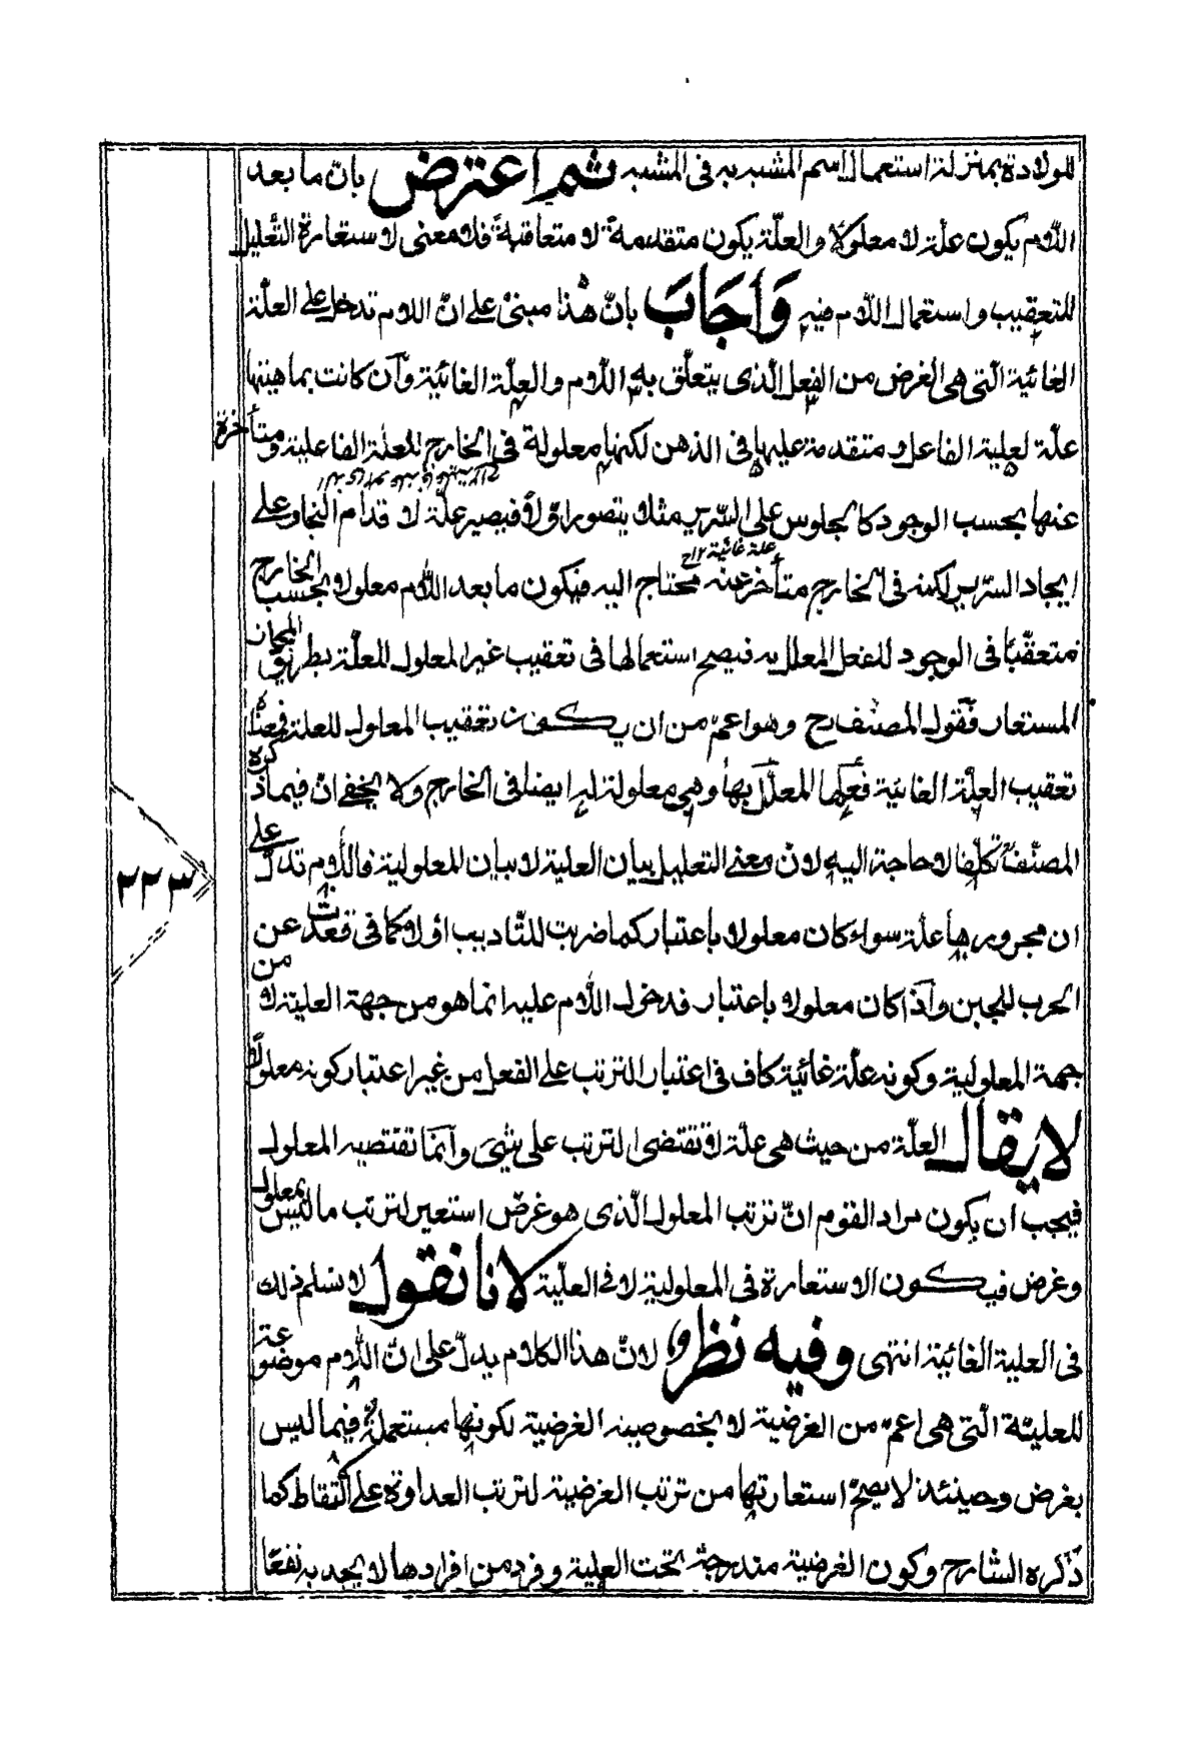 للولادة بمنزلة استعمال اسم المشبه به فى المشبه ثم اعترض بانّ ما بعد
اللام يكون علّة لا معلولا والعلّة يكون متقدمة لا متعاقبة فلا معنى لاستعارة التّعليل
للتعقيب واستعمال اللام فيه وَاَجَابَ بانّ هٰذا مبنىّ على انّ اللام تدخل على العلّة
الغائية الّتى هى الغرض من الفعل الّذى يتعلّق به اللام والعلّة الغائية وان كانت بماهيتها
علّة لعلية الفاعل ومتقدمة عليها فى الذهن لكنها معلولة فى الخارج للعلة الفاعلية ومتأخرة
عنها بحسب الوجود كالجلوس على السّرير مثلا يتصور اوّلا فيصير علّة لاقدام النجار على
علة غائية ١٢ح
ايجاد السّرير لكنه فى الخارج متأخر عنه محتاج اليه فيكون ما بعد اللام معلولا بحسب الخارج
متعقّبًا فى الوجود للفعل المعلل به فيصح استعمالها فى تعقيب غير المعلول للعلّة بطريق المجاز
المستعار فقول المصنف ح وهو اعمّ من ان يكون تعقيب المعلول للعلة فمعناه
تعقيب العلّة الغائية فعلها المعلّل بها وهى معلولة له ايضا فى الخارج ولا يخفى انّ فيما ذكره
المصنّف تكلّفا لا حاجة اليه لانّ معنى التعليل بيان العلية لا بيان للمعلولية فاللام تدلّ على
ان مجرورها علة سواء كان معلولا باعتبار كما ضربت للتاديب او لا كما فى قعدت عن
الحرب للجبن واذا كان معلولا باعتبار فدخول اللام عليه انما هو من جهة العلية لا من
جهة المعلولية وكونه علّة غائية كاف فى اعتبار الترتب على الفعل من غير اعتبار كونه معلولا
لا يقال العلّة من حيث هى علّة لا تقتضى الترتب على شئ وانّما تقتضيه المعلول
فيجب ان يكون مراد القوم انّ ترتب المعلول الّذى هو غرض استعير لترتب ما ليس بمعلول
وغرض فيكون الاستعارة فى المعلولية لا فى العلّية لانا نقول لا نسلم ذلك
فى العلية الغائية انتهى وفيه نظر لانّ هذا الكلام يدلّ على انّ اللام موضوعة
للعليّة الّتى هى اعمّ من الغرضية لا بخصوصية الغرضية لكونها مستعملة فيما ليس
بغرض وحينئذ لا يصحّ استعارتها من ترتب الغرضية لترتب العداوة على التقاط كما
ذكره الشارح وكون الغرضية مندرجة تحت العلية وفرد من افرادها لا يجد به نفعًا
٢٢٣